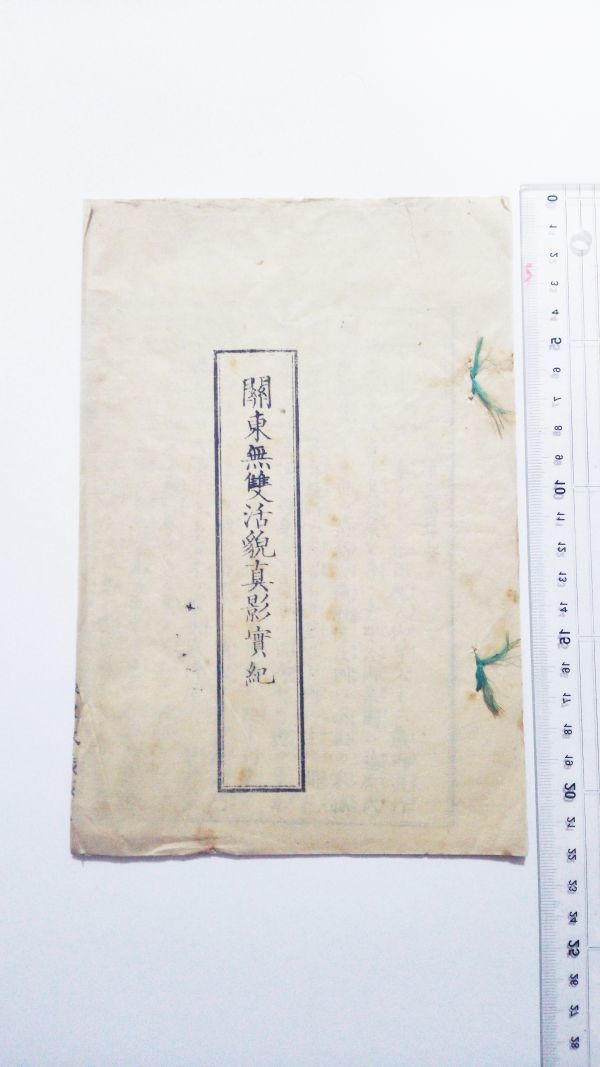 關東無雙活貌真影實紀
0
1
2
3
4
5
6
7
8
9
10
11
12
13
14
15
16
17
18
19
20
21
22
23
24
25
26
27
28